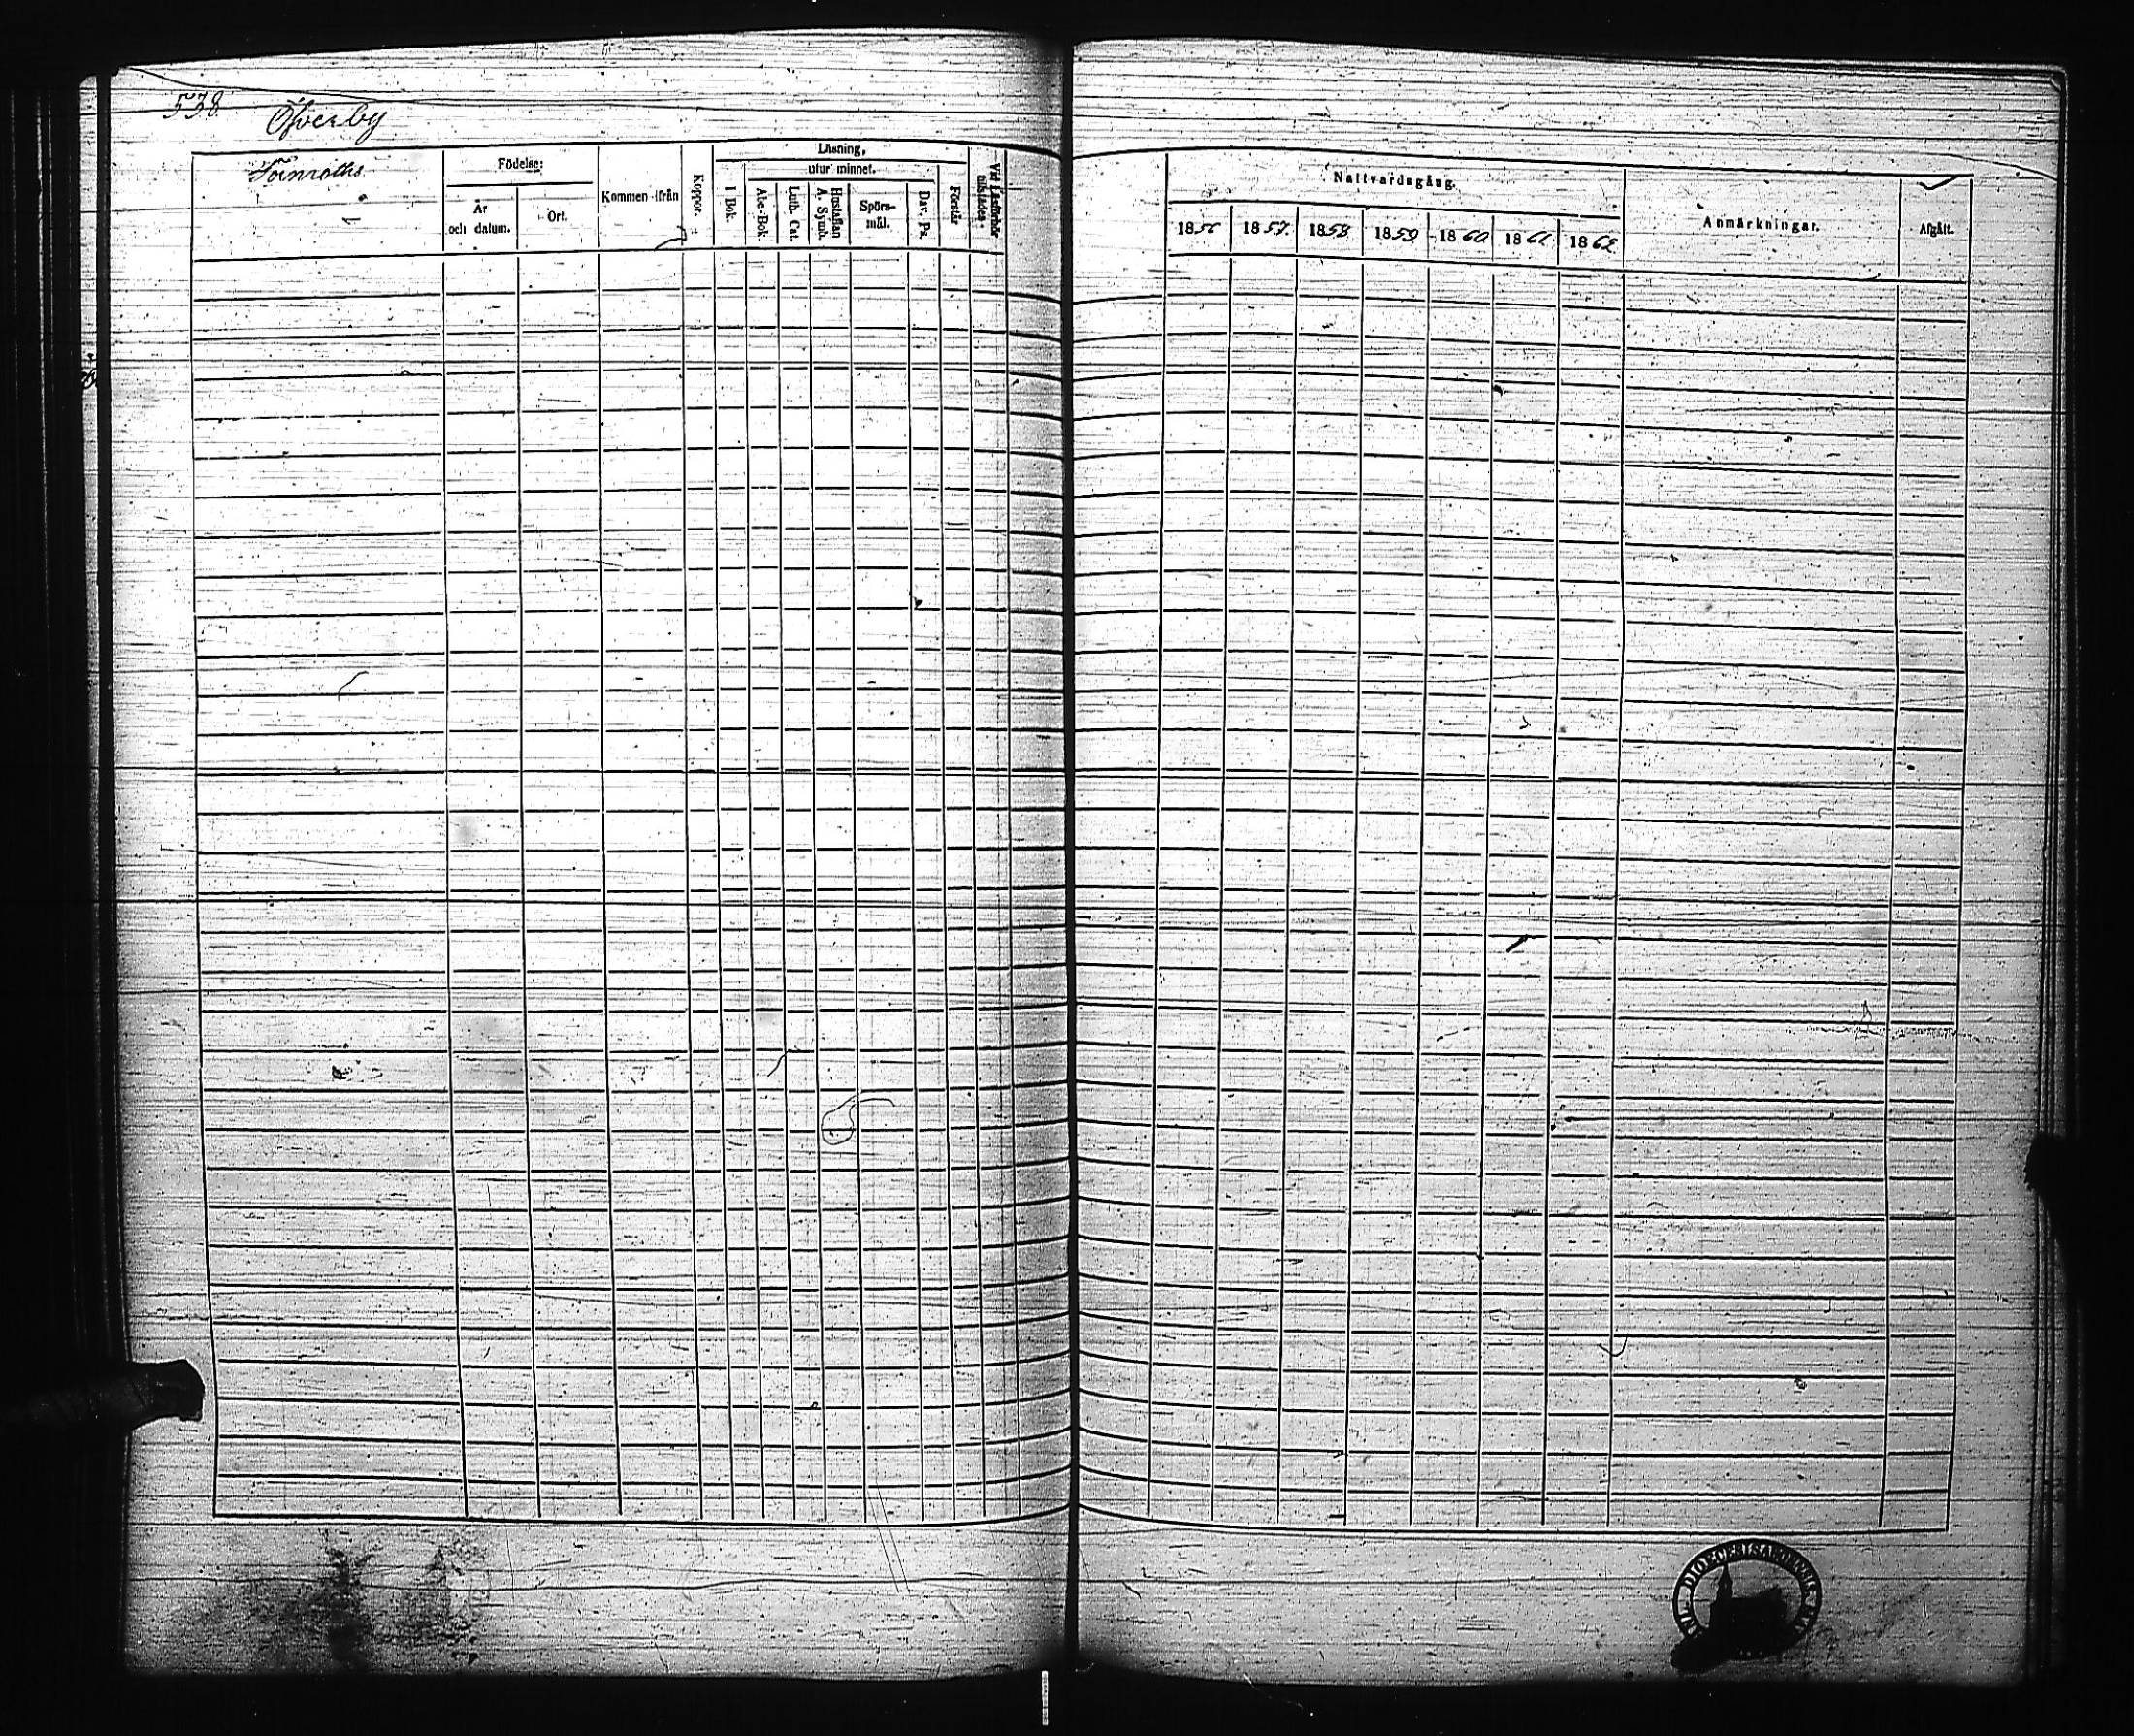 538 Öfverby
Törnroths
Födelse:
År
och datum.
Ort.
Kommen ifrån
Koppor.
Läsning,
utur minnet.
I Bok.
Abc-Bok.
Luth. Cat.
Hustaflan
A. Symb.
Spörs-
mål.
Dav. Ps.
Förstår
Vid Läsförhör
tillstädes.
Nattvardsgång.
1856 1857. 1858 1859 1860 1861 1862
Anmärkningar.
Afgått.